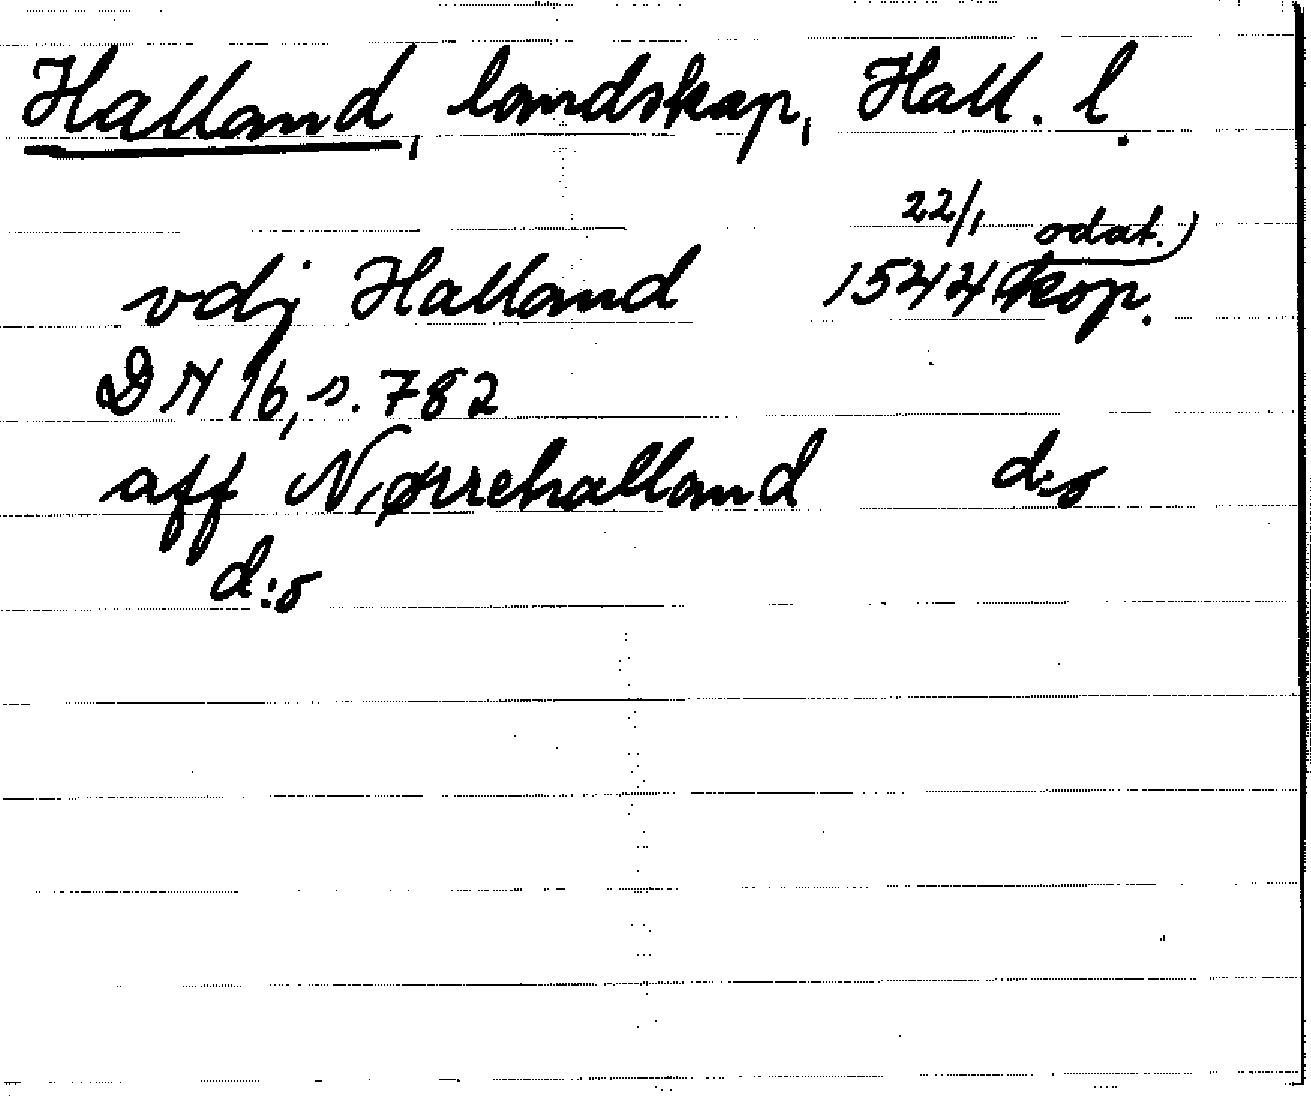 Halland, landskap, Hall. l.
vdj Halland 1544 22/1 (odat. kop.)
DN 16, s. 782
aff Nørrehalland d:o
d:o